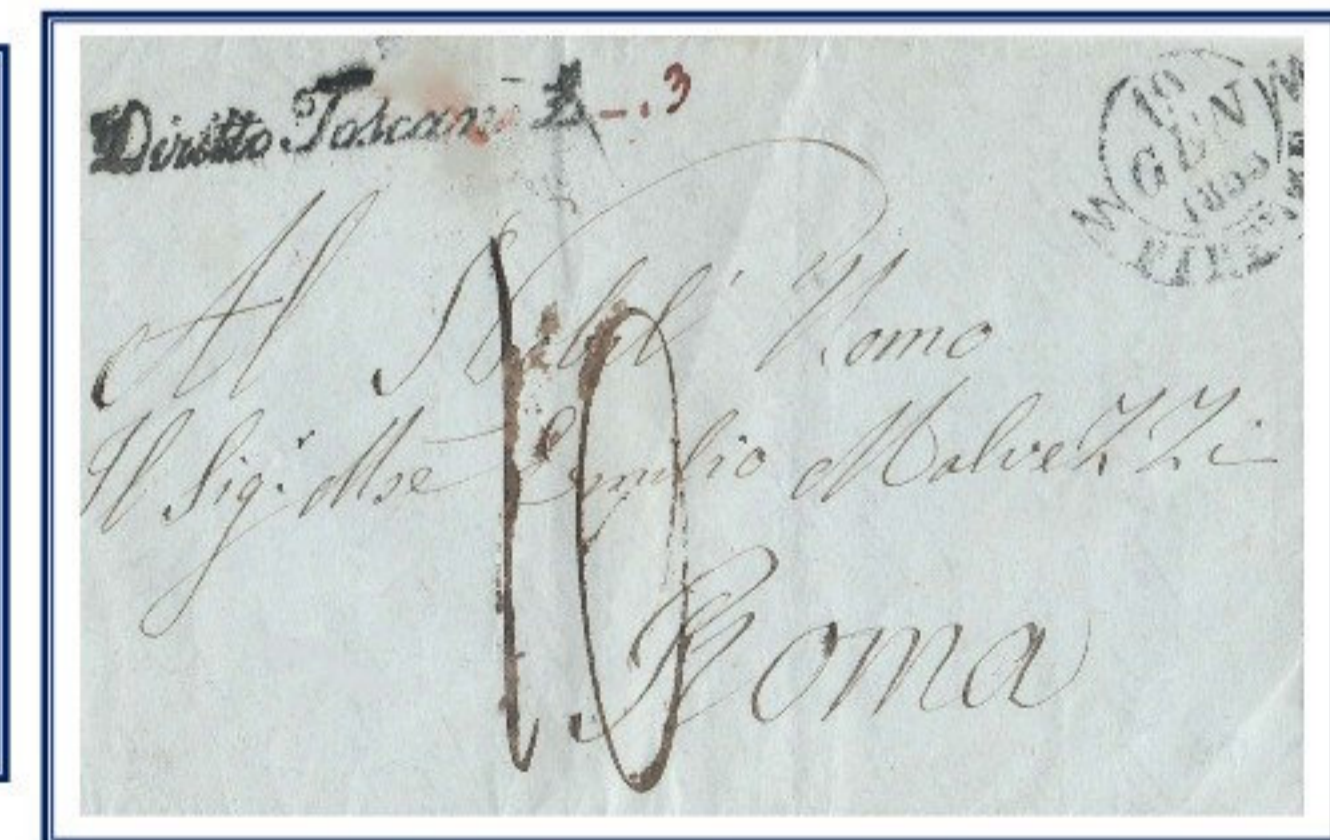 Diritto Toscano L -. 3
10
GEN
1853
FIRENZE
Al Nobil' Uomo
Il Sigr. Mse Emilio Malvezzi
10
Roma